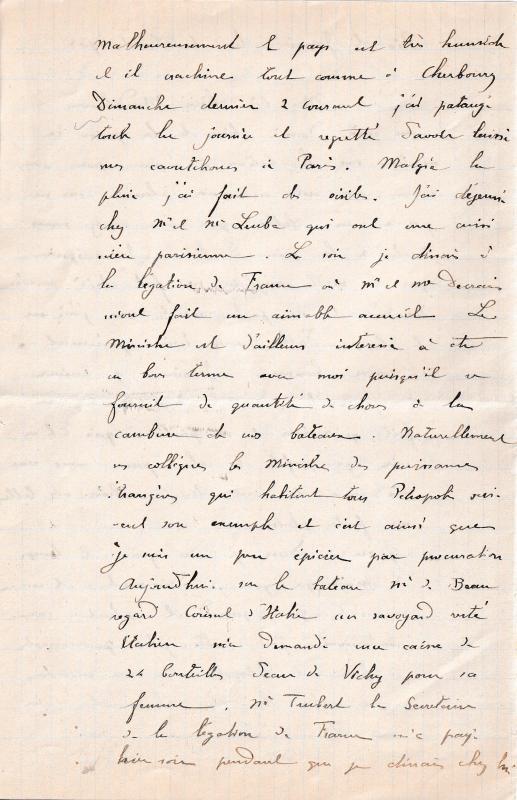 Malheureusement le pays est très humide
et il crachine tout comme à Cherbourg
Dimanche dernier 2 courant j'ai pataugé
toute la journée et regretté d'avoir laissé
mes caoutchoucs à Paris. Malgré la
pluie j'ai fait des visites. J'ai déjeuné
chez Mr et Me Leuba qui ont une aussi
nièce parisienne. Le soir je dinais à
la légation de France où Mr et Me Decrais
m'ont fait un aimable accueil. Le
Ministre est d'ailleurs intéressé à être
en bons termes avec moi puisqu'il se
fournit de quantité de choses à la
cambuse de nos bateaux. Naturellement
ses collègues les Ministres des puissances
étrangères qui habitent tous Pétropolis sui-
vent son exemple et c'est ainsi que
je suis un peu épicier par procuration
Aujourd'hui sur le bateau Mr de Beau
regard Consul d'Italie un savoyard resté
Italien m'a demandé une caisse de
24 bouteilles d'eau de Vichy pour sa
femme. Mr Trubert le Secrétaire
de la légation de France m'a payé
hier soir pendant que je dinais chez lui